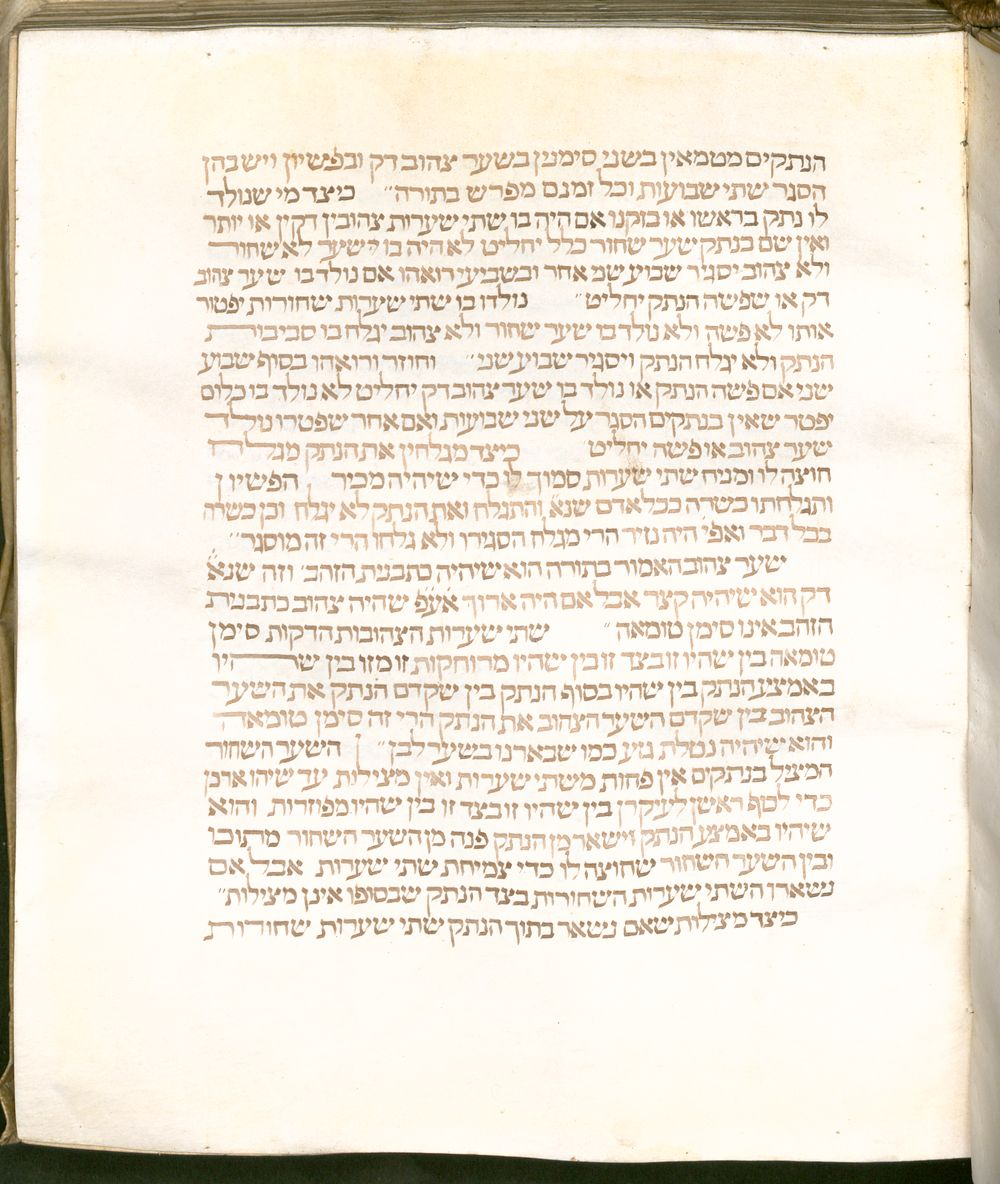 הנתקים מטמאין בשני סימנין בשער צהוב דק ובפשיון ויש בהן
הסגר שתי שבועות וכל זמנם מפרש בתורה״ כיצד מי שנולד
לו נתק בראשו או בזקנו אם היה בו שתי שערות צהובין דקין או יותר
ואין שם בנתק שער שחור כלל יחליט לא היה בו שער לא שחור
ולא צהוב יסגיר שבוע אחר ובשביעי רואהו אם נולד בו שער צהוב
דק או שפשה הנתק יחליט״ נולדו בו שתי שערות שחורות יפטור
אותו לא פשה ולא נולד בו שער שחור ולא צהוב יגלח בו סביבות
הנתק ולא יגלח הנתק ויסגיר שבוע שני״ וחוזר ורואהו בסוף שבוע
שני אם פשה הנתק או נולד בו שער צהוב דק יחליט לא נולד בו כלום
יפטר שאין בנתקים הסגר על שני שבועות ואם אחר שפטרו נולד
שער צהוב או פשה יחליט״ כיצד מגלחין את הנתק מגלח
חוצה לו ומניח שתי שערות סמוך לו כדי שיהיה מכיר הפשיון
ותגלחתו כשרה בכל אדם שנא׳ והתגלח ואת הנתק לא יגלח וכן כשרה
בכל דבר ואפי׳ היה נזיר הרי מגלח הסגירו ולא גלחו הרי זה מוסגר״
שער צהוב האמור בתורה הוא שיהיה כתבנית הזהב׳ וזה שנא׳
דק הוא שיהיה קצר אבל אם היה ארוך אעפ׳ שהיה צהוב כתבנית
הזהב אינו סימן טומאה״ שתי שערות הצהובות הדקות סימן
טומאה בין שהיו זו בצד זו בין שהיו מרוחקות זו מזו בין שהיו
באמצע הנתק בין שהיו בסוף הנתק בין שקדם הנתק את השער
הצהוב בין שקדם השער הצהוב את הנתק הרי זה סימן טומאה
והוא שיהיה נטלת גזע כמו שבארנו בשער לבן״ השער השחור
המציל בנתקים אין פחות משתי שערות ואין מצילות עד שיהו ארכן
כדי לכוף ראשן לעקרן בין שהיו זו בצד זו בין שהיו מפוזרות והוא
שיהיו באמצע הנתק וישאר מן הנתק פנה מן השער השחור מתוכו
ובין השער השחור שחוצה לו כדי צמיחת שתי שערות אבל אם
נשארו השתי שערות השחורות בצד הנתק שבסופו אינן מצילות״
כיצד מצילות שאם נשאר בתוך הנתק שתי שערות שחורות